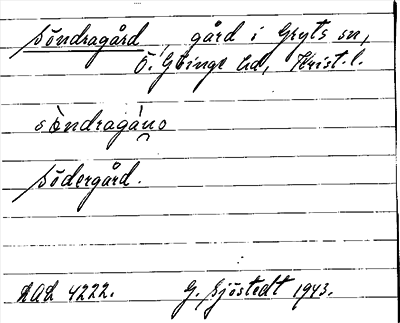 Söndragård, gård i Gryts sn,
Ö. Göinge hd, Krist. l.
sòndragàno
Södergård.
LAL 4222. G. Sjöstedt 1943.